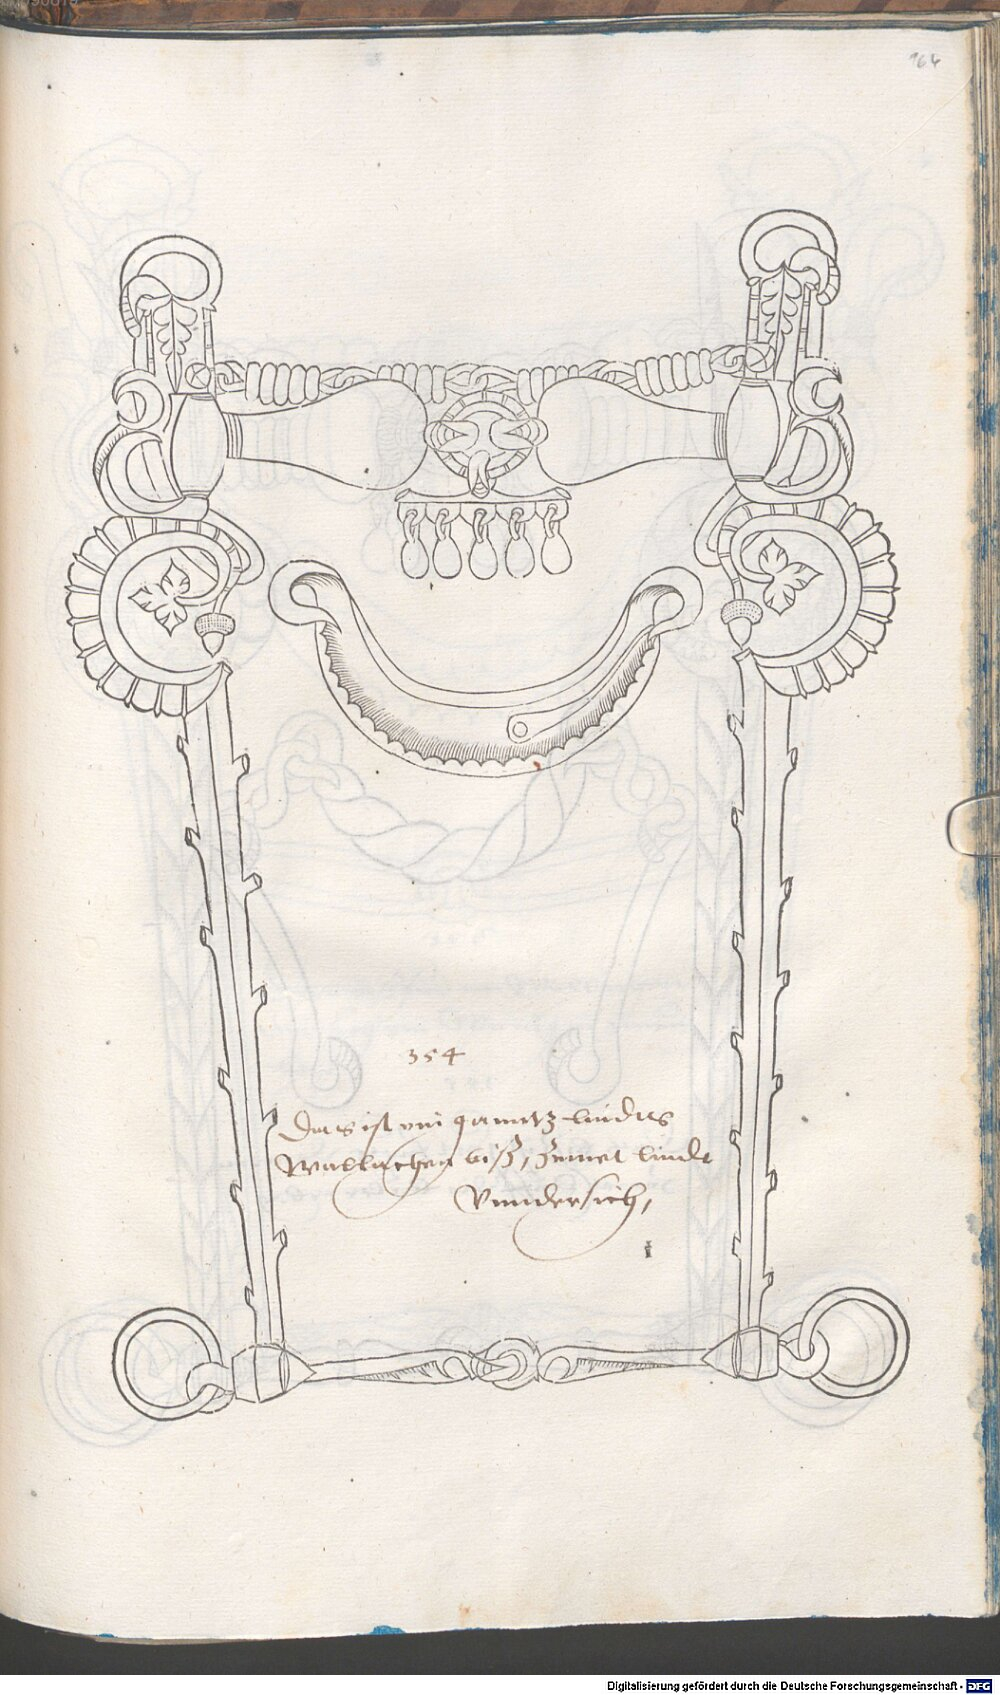 164
354
Das ist ein ganntz lindes
Wallachen biß, Zeumet linde
Vnndersich,
Digitalisierung gefördert durch die Deutsche Forschungsgemeinschaft - DFG